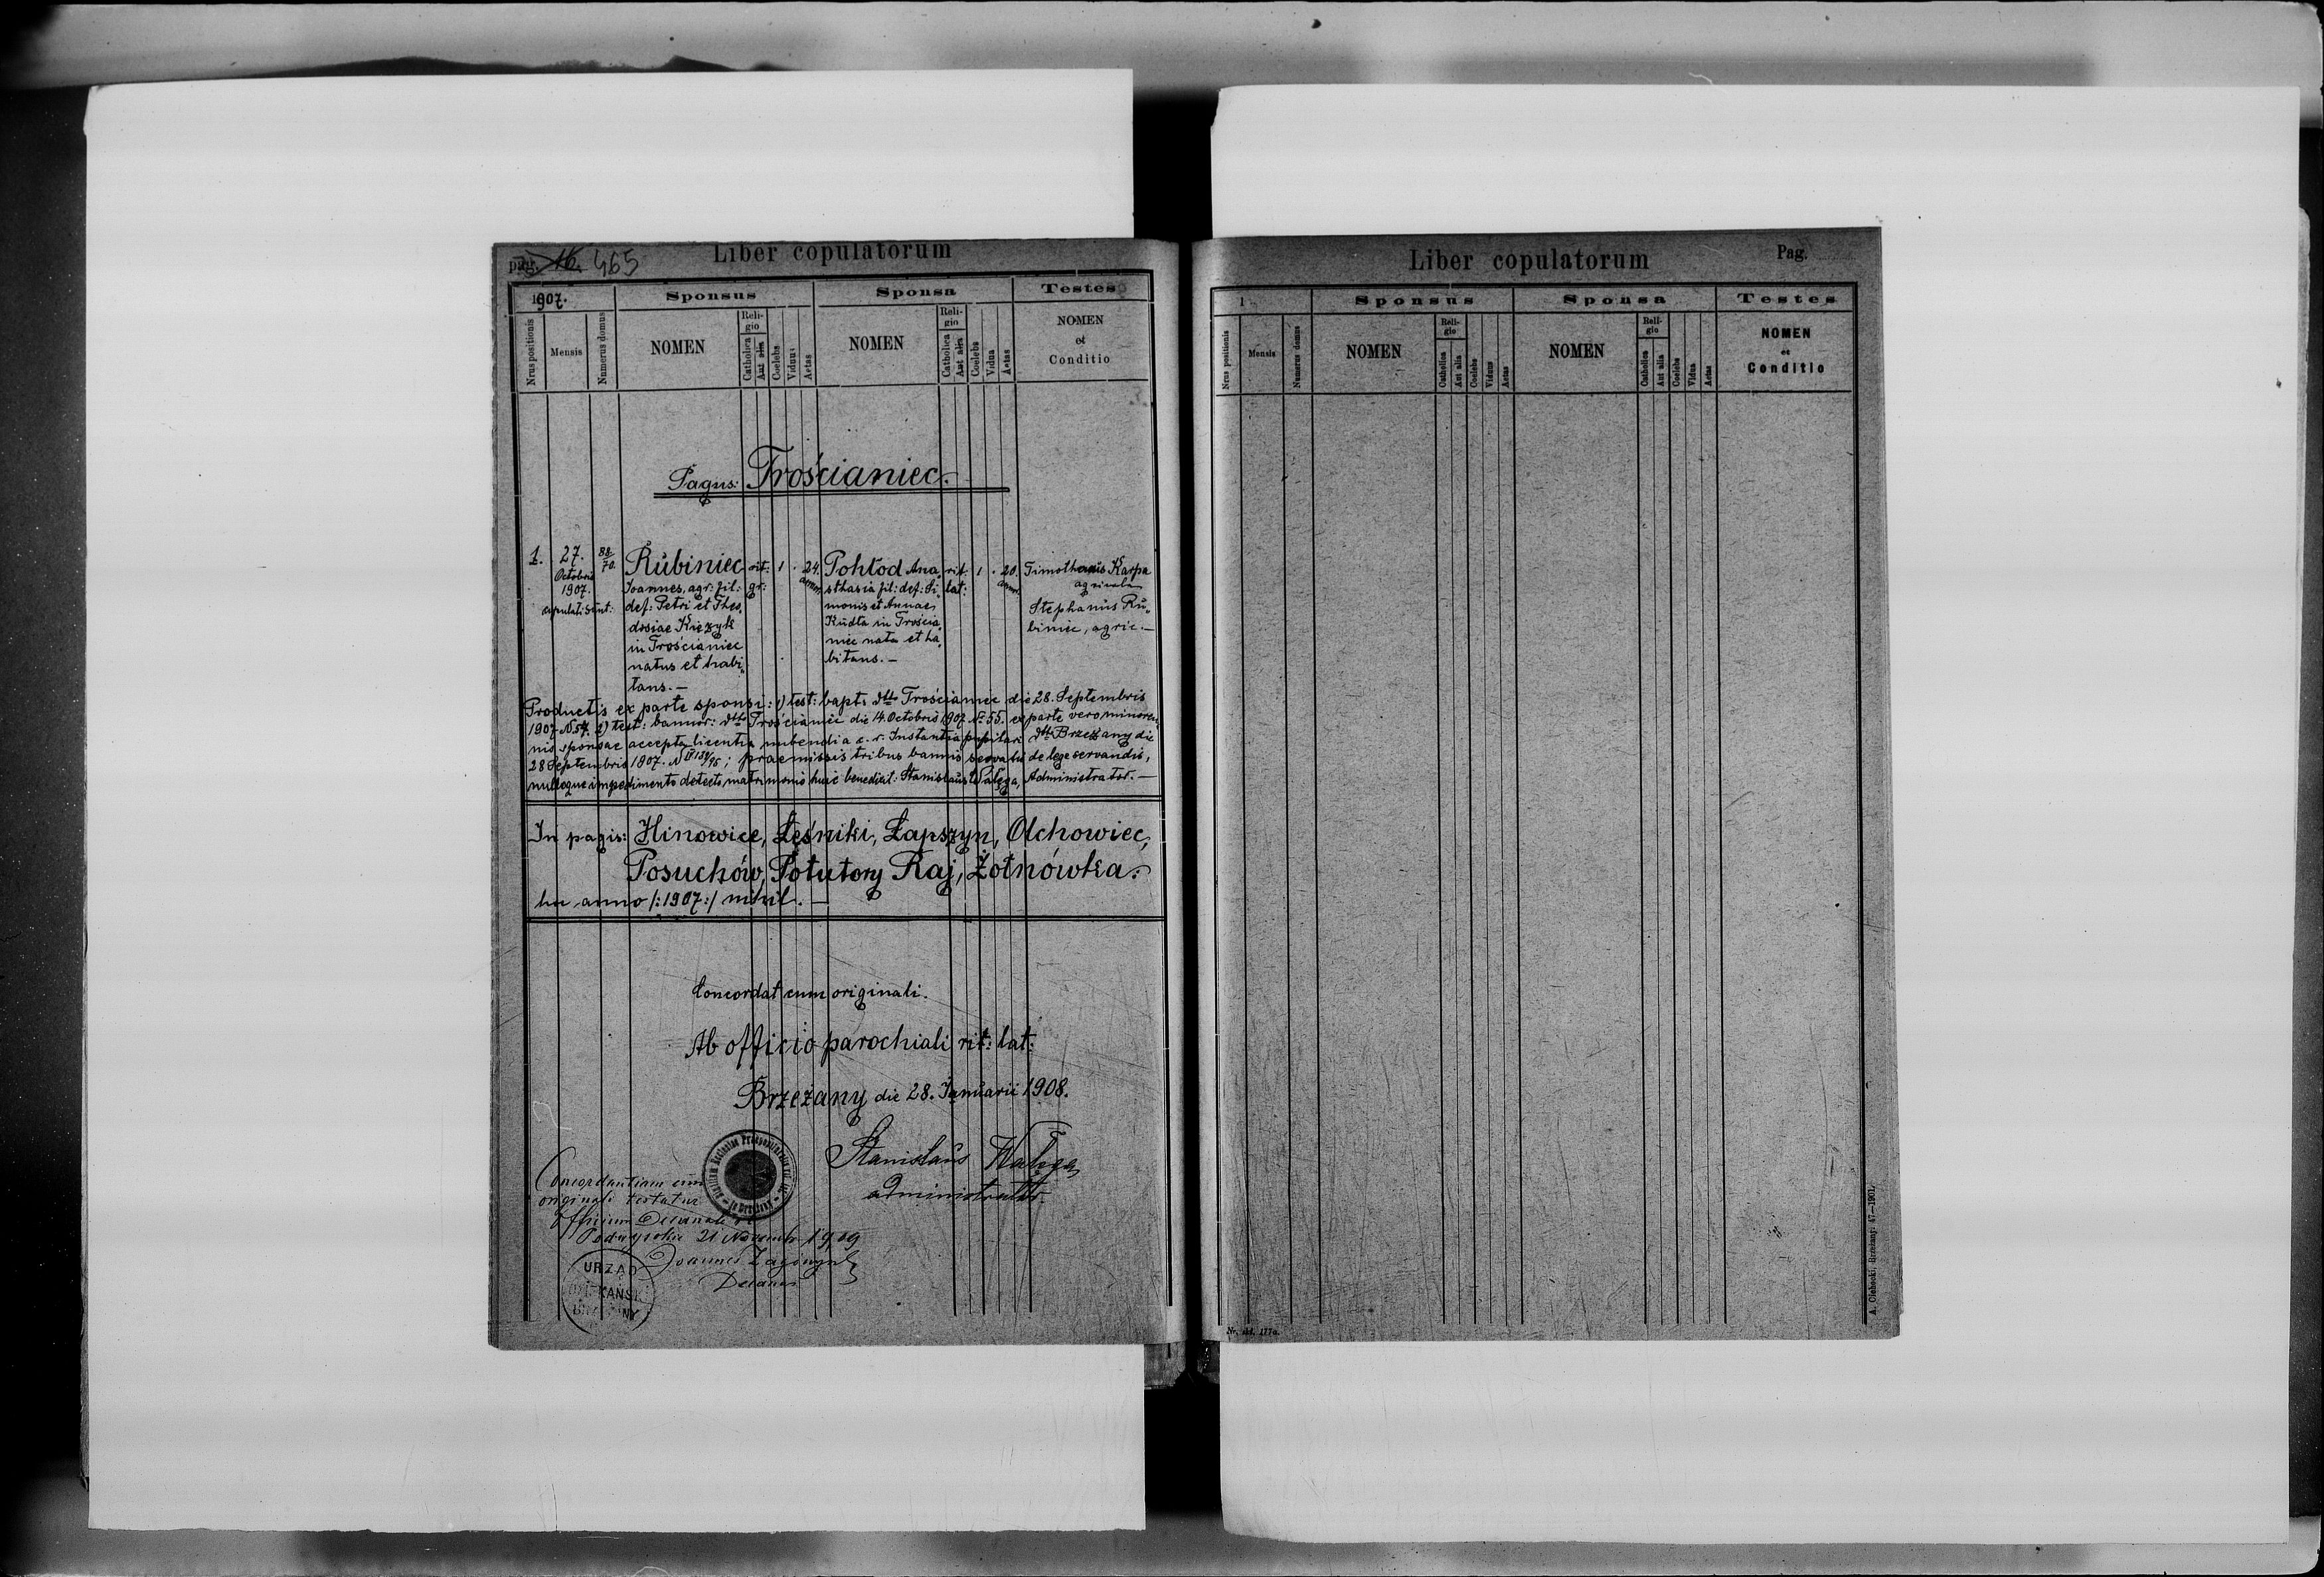 pag. 16. 465
Liber copulatorum
1907.
Sponsus
Sponsa
Testes
Nrus positionis
Mensis
Numerus domus
NOMEN
Reli-
gio
Catholica
Aut alia
Coelebs
Viduus
Aetas
NOMEN
Reli-
gio
Catholica
Aut alia
Coelebs
Vidua
Aetas
NOMEN
et
Conditio
Pagus: Trościaniec.
1.
27.
Octobris
1907.
copulati sunt:
88/70.
Rŭbiniec
Joannes, agr: fil:
def: Petri et Theo„
dosiae Kięzyk
in Trościaniec
natus et habi„
tans. —
rit:
gr:
1
24.
annor.
Pohłod Ana„
sthasia fil: def: Si„
monis et Annae
Kŭdła in Trościa„
niec nata et ha„
bitans. —
rit:
lat:
1
20.
annor.
Timotheus Karpa
agricola
Stephanŭs Rŭ„
biniec, agric. —
Productis ex parte sponsi: 1) test: bapt: dtto Trościaniec die 28. Septembris
1907 N. 54. 2) test: bannor: dtto Trościaniec die 14. Octobris 1907 N: 55. ex parte vero minoren„
nis sponsae accepta licentia nubendi a c. r. Instantia pupilari dtto Brzeżany die
28 Septembris 1907. N; praemissis tribus bannis servatis de lege servandis,
nulloque impedimento detecto, matrimonio huic benedixit: Stanislaŭs Wałęga, Administrator. —
In pagis: Hinowice, Leśniki, Łapszyn, Olchowiec,
Posuchów, Potutory Raj, Żołnówka.
hoc anno /:1907:/ nihil. —
Concordat cum originali.
Ab officio parochiali rit: lat:
Brzeżany die 28. Januarii 1908.
Stanislaŭs Wałęga
administrator
Concordantiam cum
originali testatur
Officium Decanale
Podwysokie 21 Novembr 1909
Joannes
Decanus
URZĄD
DZIEKAŃSKI
BRZEŻANY
Liber copulatorum
Pag.
1
Sponsus
Sponsa
Testes
Nrus positionis
Mensis
Numerus domus
NOMEN
Reli-
gio
Catholica
Aut alia
Coelebs
Viduus
Aetas
NOMEN
Reli-
gio
Catholica
Aut alia
Coelebs
Vidua
Aetas
NOMEN
et
Conditio
A. Ciehocki, Brzeżany. 47—1901.